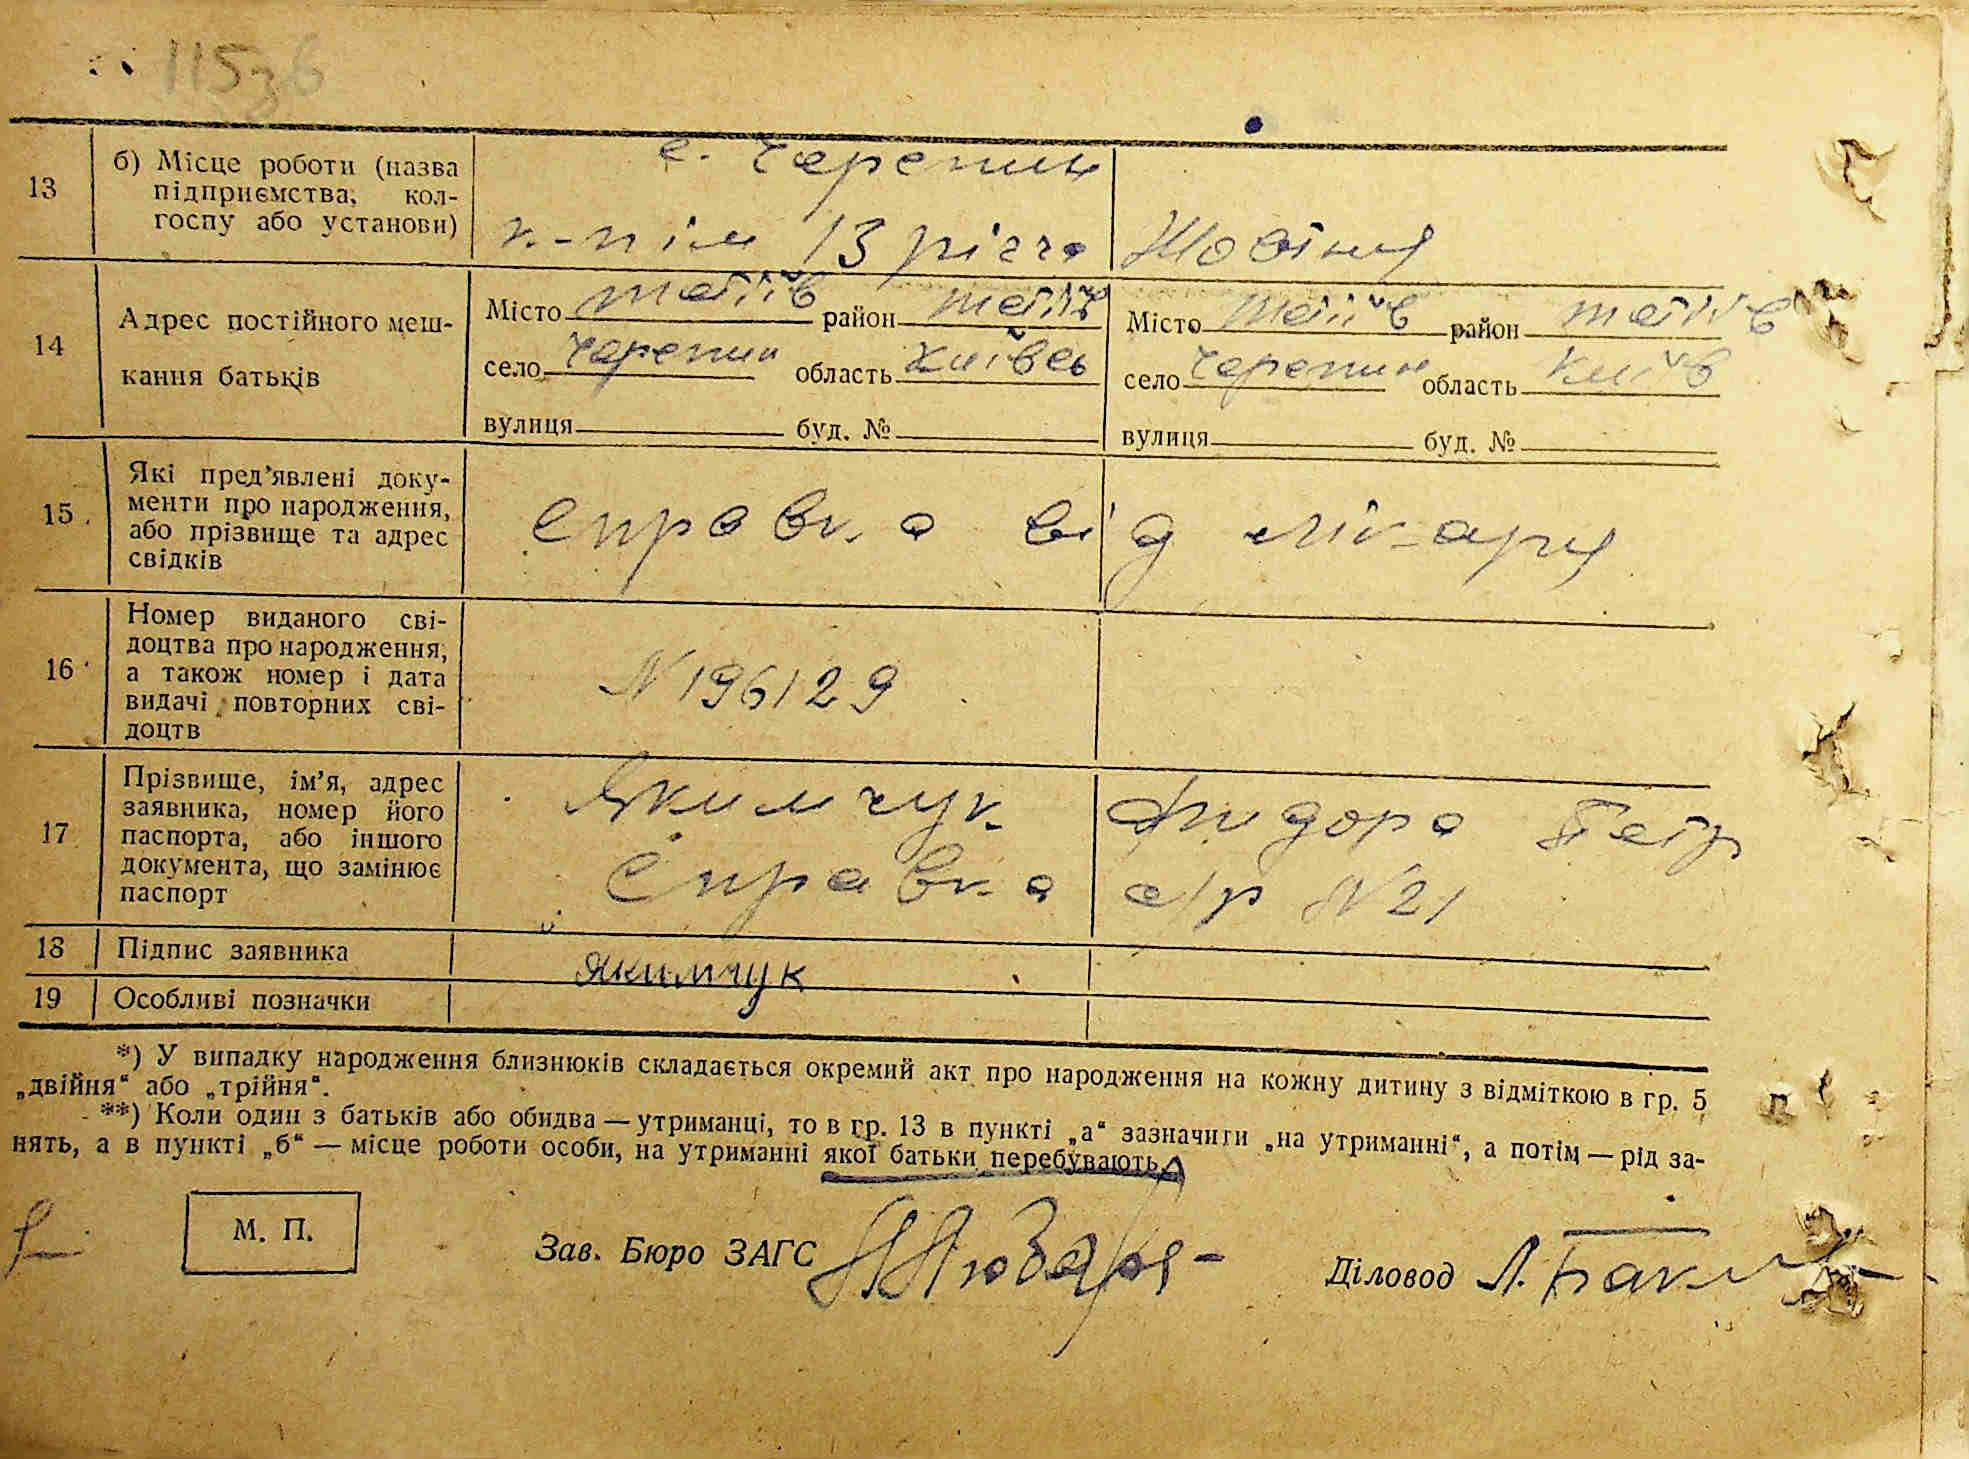 115зв
13 б) Місце роботи (назва підприємства, колгоспу або установи)
с. Черепин
к-п ім 13 річчя Жовтня
14 Адрес постійного мешкання батьків
Місто Тетіїв район Тетіїв Місто Тетіїв район Тетіїв
село Черепин область Київсь село Черепин область Київ
вулиця буд. № вулиця буд. №
15 Які пред'явлені документи про народження, або прізвище та адрес свідків
Справка від лікаря
16 Номер виданого свідоцтва про народження, а також номер і дата видачі повторних свідоцтв
N 196129
17 Прізвище, ім'я, адрес заявника, номер його паспорта, або іншого документа, що замінює паспорт
Якимчук Фидора Петр
Справка с/р N 21
18 Підпис заявника Якимчук
19 Особливі позначки
*) У випадку народження близнюків складається окремий акт про народження на кожну дитину з відміткою в гр. 5
„двійня“ або „трійня“.
**) Коли один з батьків або обидва — утриманці, то в гр. 13 в пункті „а“ зазначити „на утриманні“, а потім — рід за-
нять, а в пункті „б“ — місце роботи особи, на утриманні якої батьки перебувають.
М. П.
Зав. Бюро ЗАГС
Діловод Л.